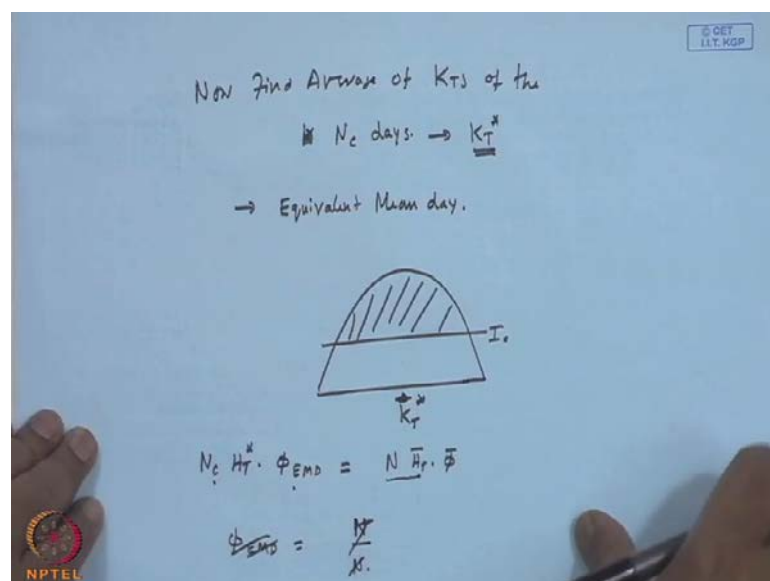 © CET
I.I.T. KGP
Now Find Average of KTs of the
Nc days. → KT*
→ Equivalent Mean day.
Ic
KT*
Nc HT*. ΦEMD = N H̄T. Φ̄
ΦEMD = N
N.
NPTEL